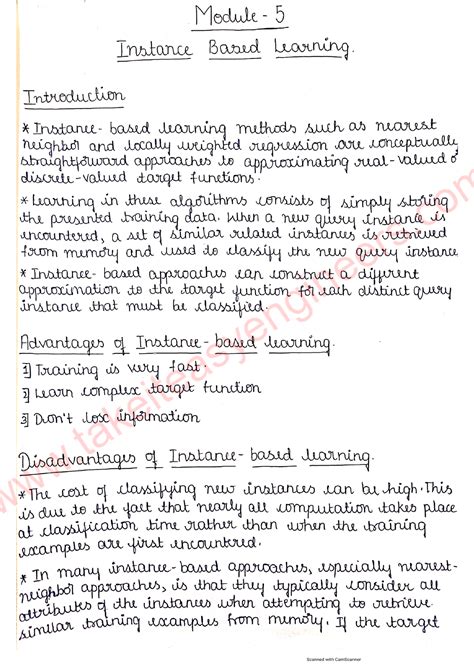 Module - 5
Instance Based Learning.
Introduction
* Instance-based learning methods such as nearest
neighbor and locally weighted regression are conceptually
straightforward approaches to approximating real-valued o
discrete-valued target functions.
* Learning in these algorithms consists of simply storing
the presented training data. When a new query instance is
encountered, a set of similar related instances is retrieved
from memory and used to classify the new query instance
* Instance-based approaches can construct a different
approximation to the target function for each distinct query
instance that must be classified.
Advantages of Instance-based learning.
1] Training is very fast.
2] Learn complex target function
3] Don't lose information
Disadvantages of Instance-based learning.
* The cost of classifying new instances can be high. This
is due to the fact that nearly all computation takes place
at classification time rather than when the training
examples are first encountered.
* In many instance-based approaches, especially nearest-
neighbor approaches, is that they typically consider all
attributes of the instances when attempting to retrieve
similar training examples from memory. If the target
www.takeiteasyengineers.com
Scanned with CamScanner